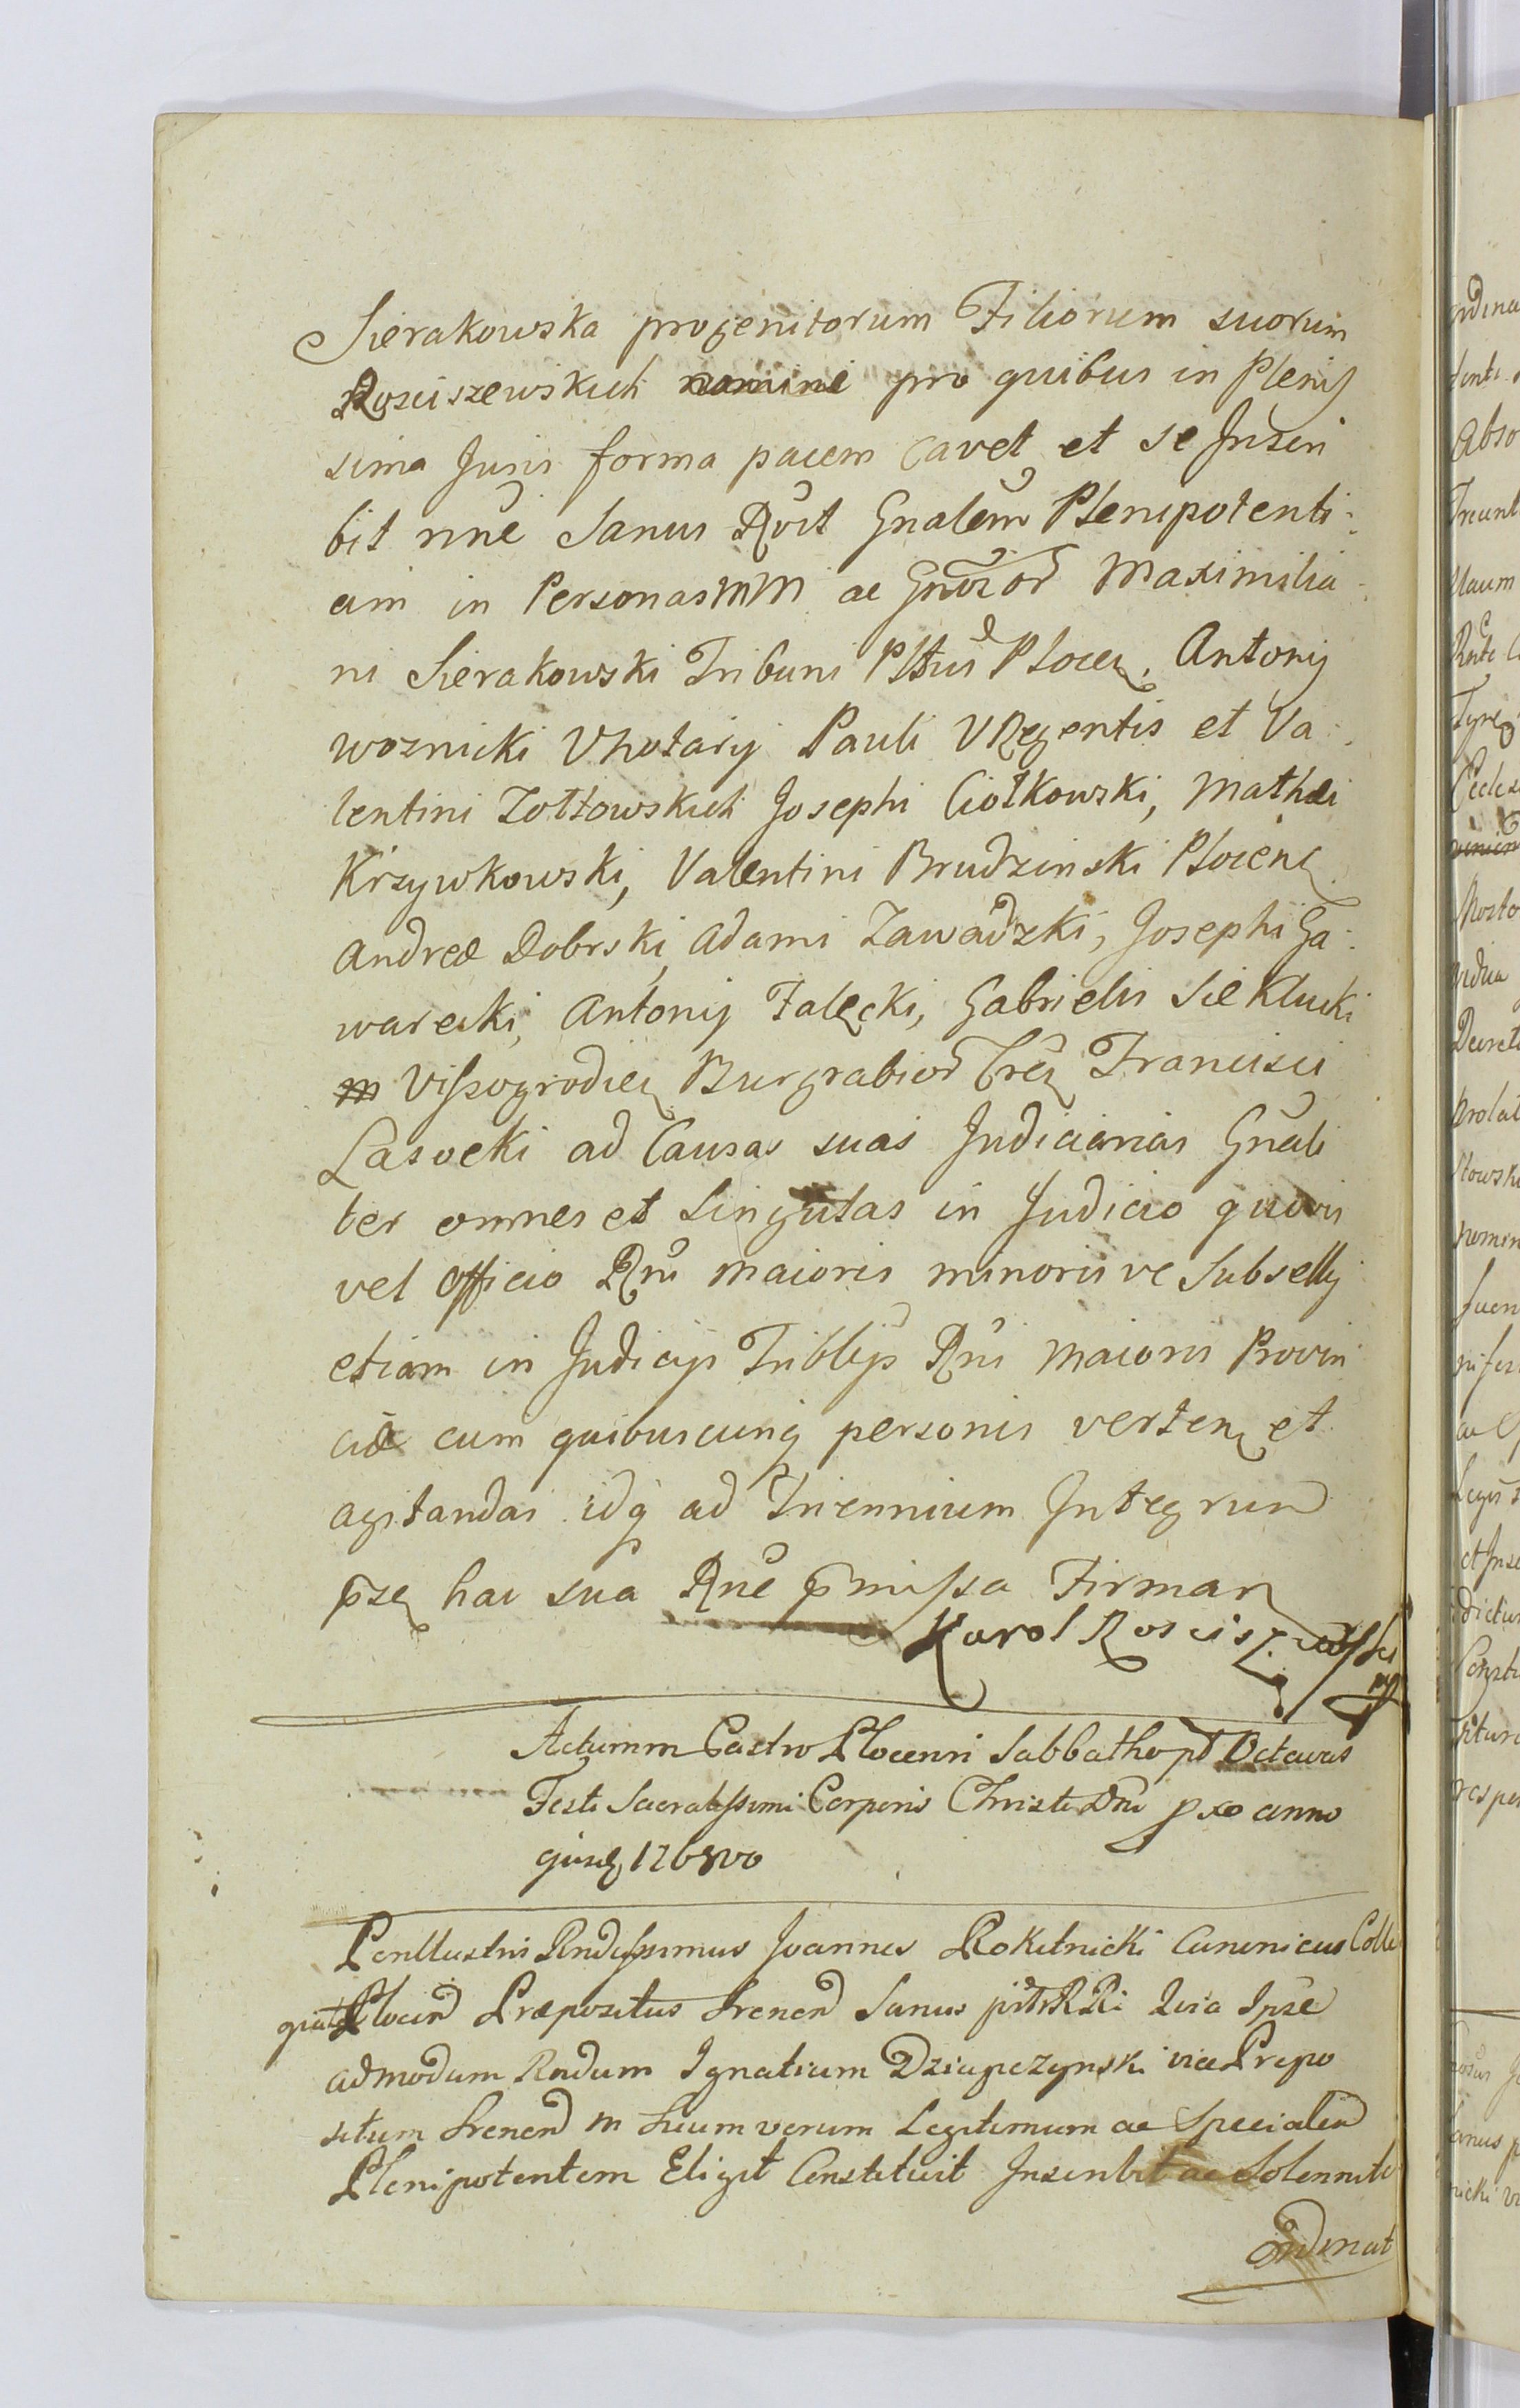 Sierakowska progenitorum Filiorum suorum
Rosciszewskich nomine pro quibus in Plenis
sima Juris forma pacem Cavet et se Inscri
bit nne Sanus Rvit Gnalem Plenipotenti-
am in Personas MM ac Gnror Maximilia-
ni Sierakowski Tribuni Plocen. Antonij
woznicki VNotarij Pauli VRegentis et Va-
lentini Zołtowskich Josephi Ciółkowski, Mathæi
Krzywkowski, Valentini Brudzinski Plocens
Andreæ Dobrski, Adami Zawadzki, Josephi Ga-
warecki, Antonij Fałęcki, Gabrielis Siekłucki
Vissogrodien Burgrabior Cren Francisci
Lasocki ad Causas suas Judiciarias Gnali
ter omnes et Singulas in Judicio quovis
vel Officio Rni maioris minorisve Subsellij
etiam in Judicijs Tribljs Rni Maioris Provin
ciæ cum quibuscunq personis verten et
agitandas idq ad Triennium Integrum
psen hac sua Rne pmissa Firman
Karol Rosciszewski
mp
Actum in Castro Plocensi Sabbatho pt Octavas
Festi Sacratissimi Corporis Christi Dni pxo anno
ejusd 1768vo
Perillustris Rndissimus Joannes Rokitnicki Canonicus Colle
giat Plocen Præpositus Srenen Sanus Quia Ipse
admodum Rndum Ignatium Dziapczynski vice Prepo
situm Srenen in Suum verum Legitimum ac Specialem
Plenipotentem Eligit Constituit Inscribit ac Solennite
Ordinat